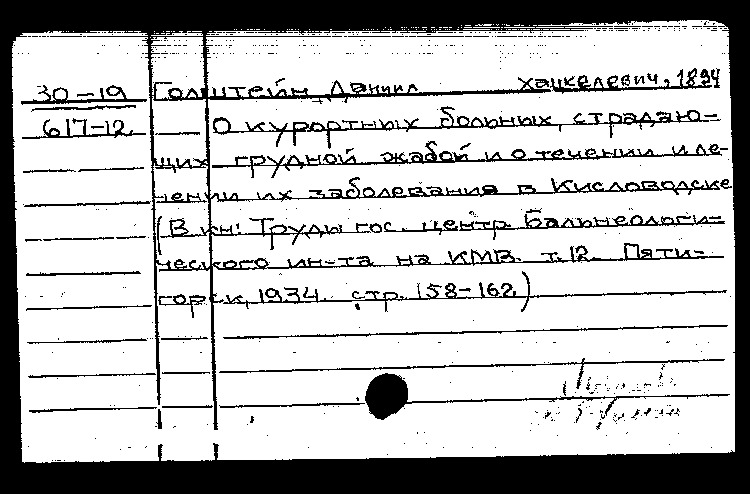 30-19 Голштейн, Даниил Хацкелевич, 1894
617-12. О курортных больных, страдаю-
щих грудной жабой и о течении и ле-
чении их заболевания в Кисловодске
(В кн: Труды гос. центр. Бальнеологи-
ческого ин-та на КМВ. т.12. Пяти-
горск, 1934. стр. 158-162)